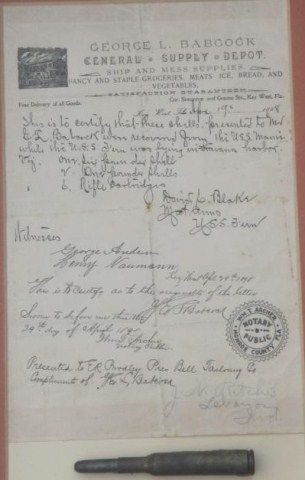 GEORGE L. BABCOCK
GENERAL SUPPLY DEPOT.
SHIP AND MESS SUPPLIES.
FANCY AND STAPLE GROCERIES, MEATS, ICE, BREAD, AND
VEGETABLES.
SATISFACTION GUARANTEED
Free Delivery of all Goods.
Cor. Simonton and Greene Sts., Key West, Fla.
This is to certify that these shells presented to Mr
G. L. Babcock was recovered from the U.S.S. Maine
while the U.S.S. Fern was lying in Havana harbor.
Viz. One six pound shell
2. One pound shells
6. Rifle Cartridges
David C. Blake
U.S.S. Fern
Witnesses
George
Henry Naumann
Key West
This is to certify as to the originality of the letter
Geo L Babcock
Sworn to before me this the
29th day of April
Notary Public
WM. T. ARCHER
NOTARY
PUBLIC
MONROE COUNTY, FLA.
Presented to
Compliments of Geo L Babcock
J.
Lebanon
Ind.